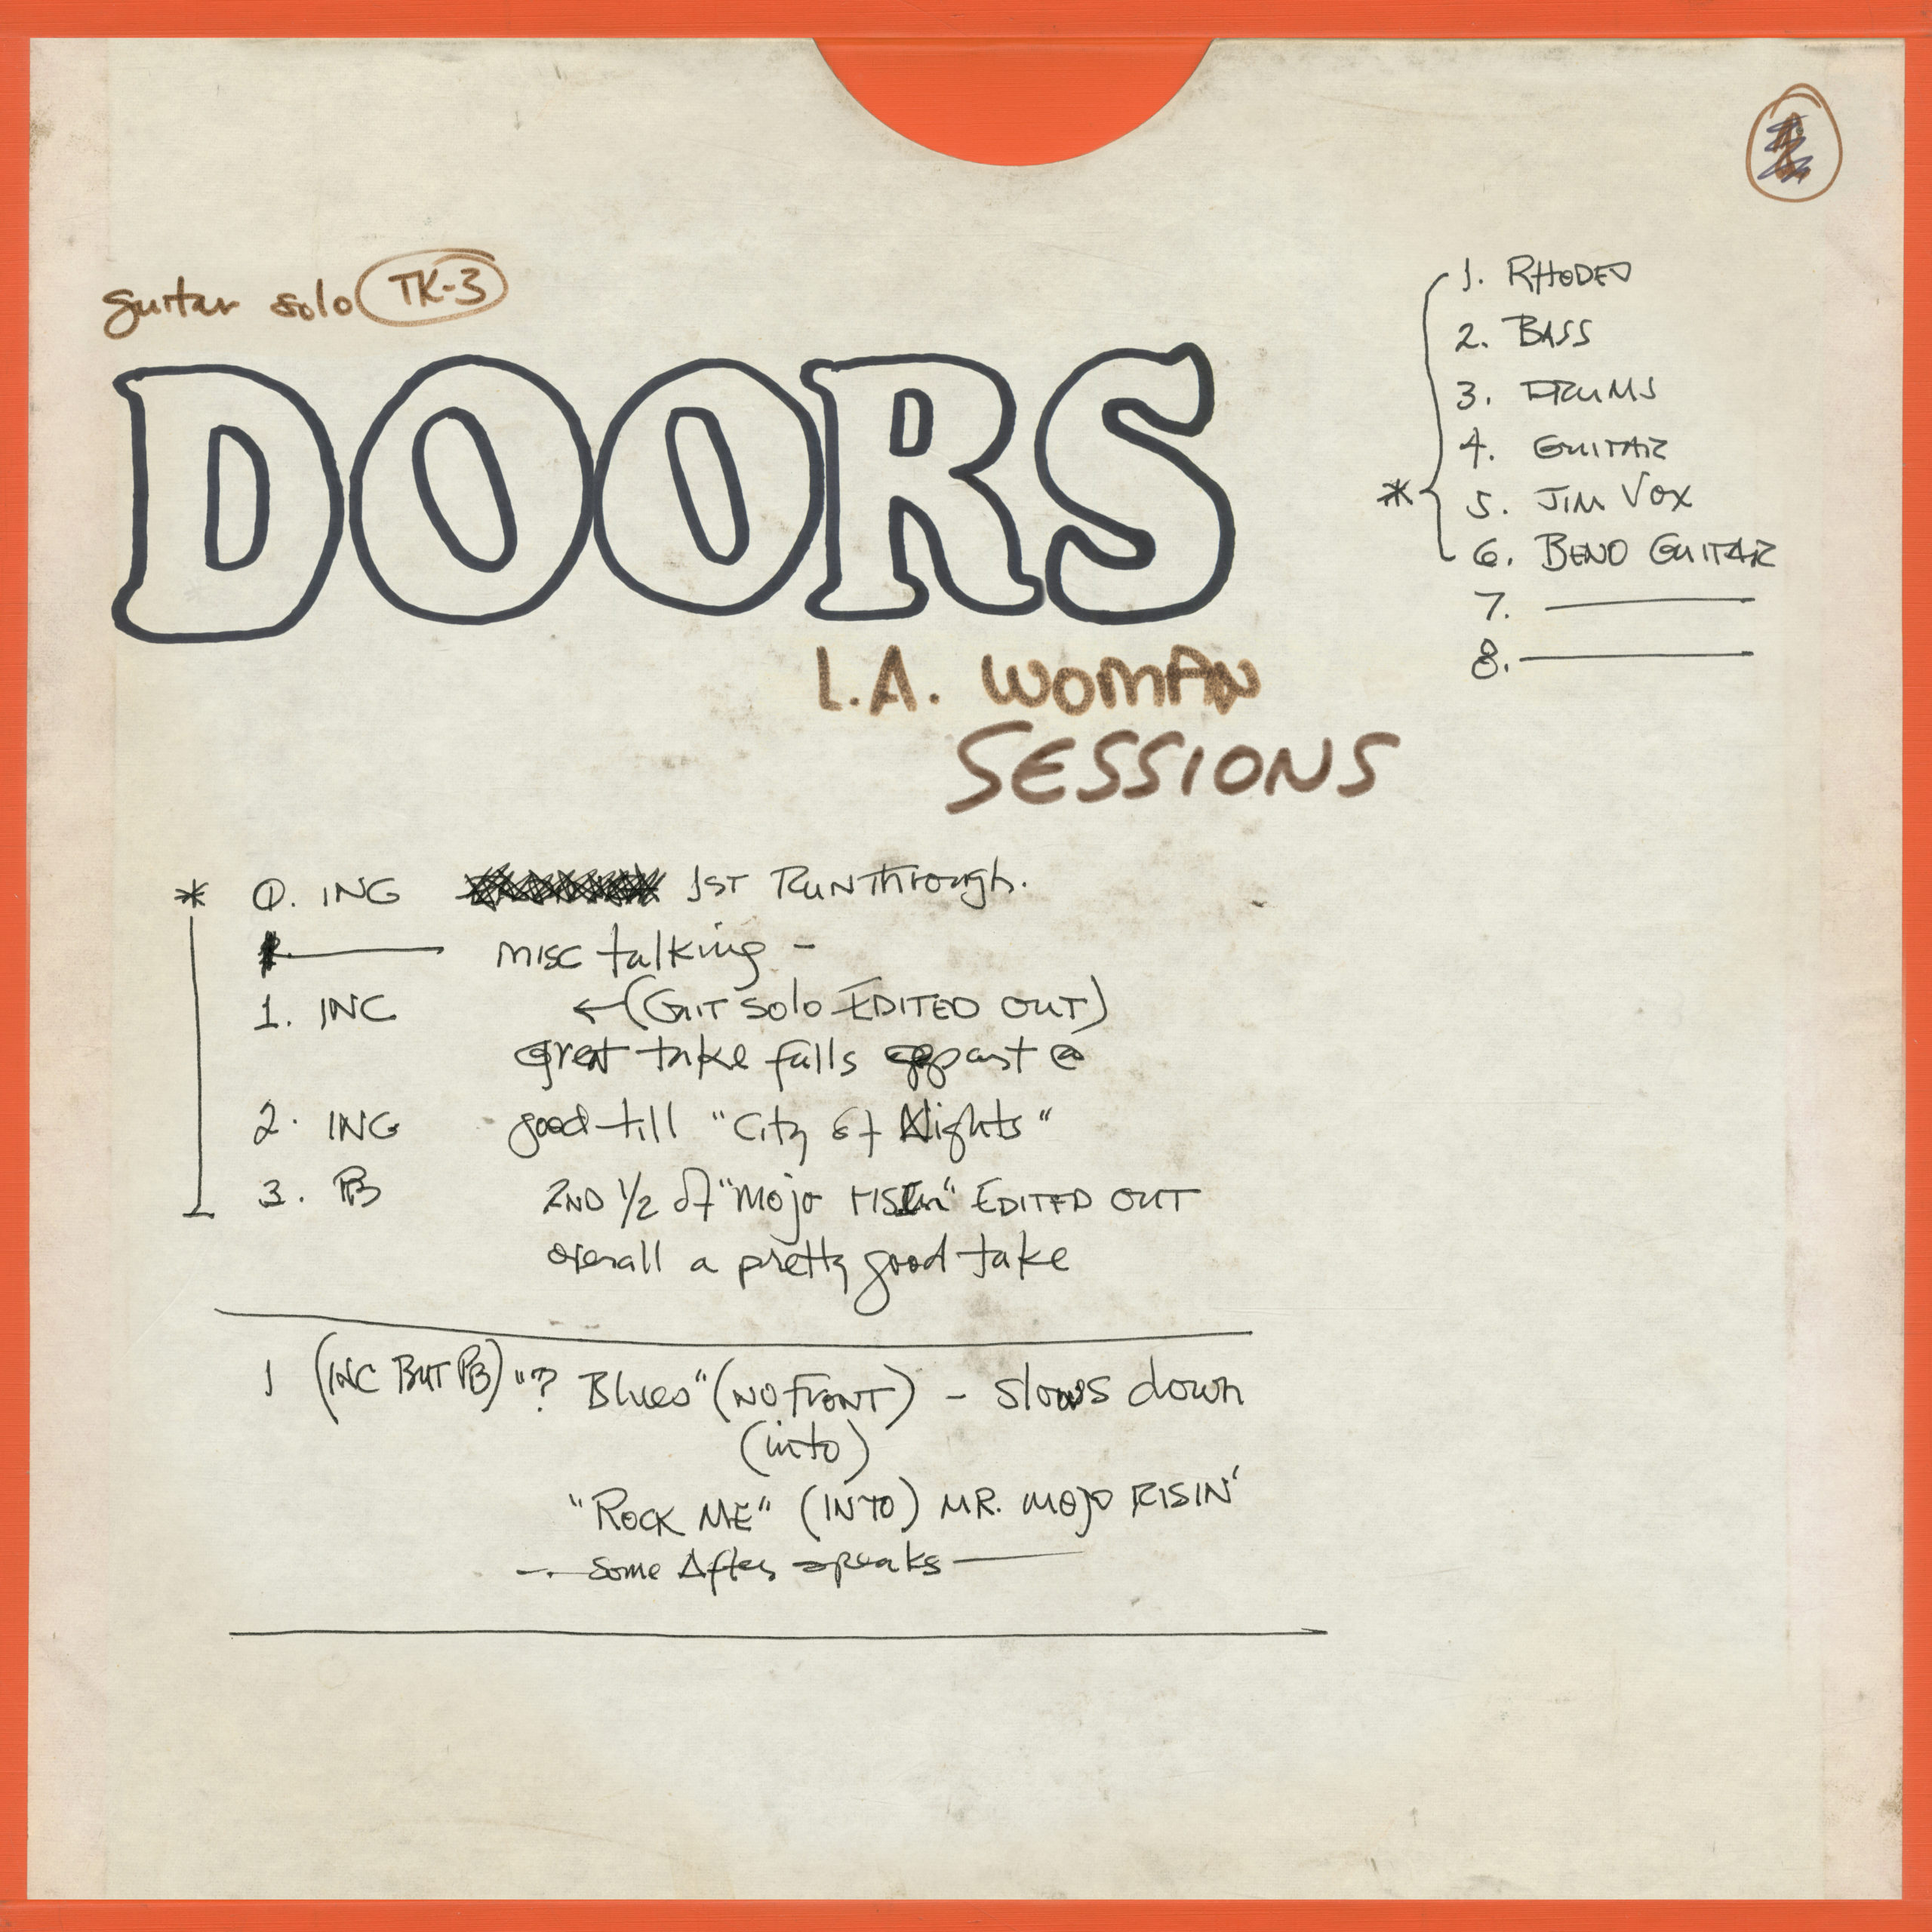 guitar solo TK-3
DOORS
L.A. WOMAN
SESSIONS
1. RHODES
2. BASS
3. DRUMS
4. GUITAR
* 5. JIM VOX
6. BENO GUITAR
7.
8.
* 0. ING 1ST RUNThrough.
misc talking -
1. INC ←(GIT SOLO EDITED OUT)
great take falls appart @
2. ING good till "City of Nights"
3. PB 2ND 1/2 of "Mojo RISin" EDITED OUT
overall a pretty good take
1 (INC BUT PB) "? Blues" (NO FRONT) - slows down
(into)
"ROCK ME" (INTO) MR. MOJO RISIN'
- some After speaks -